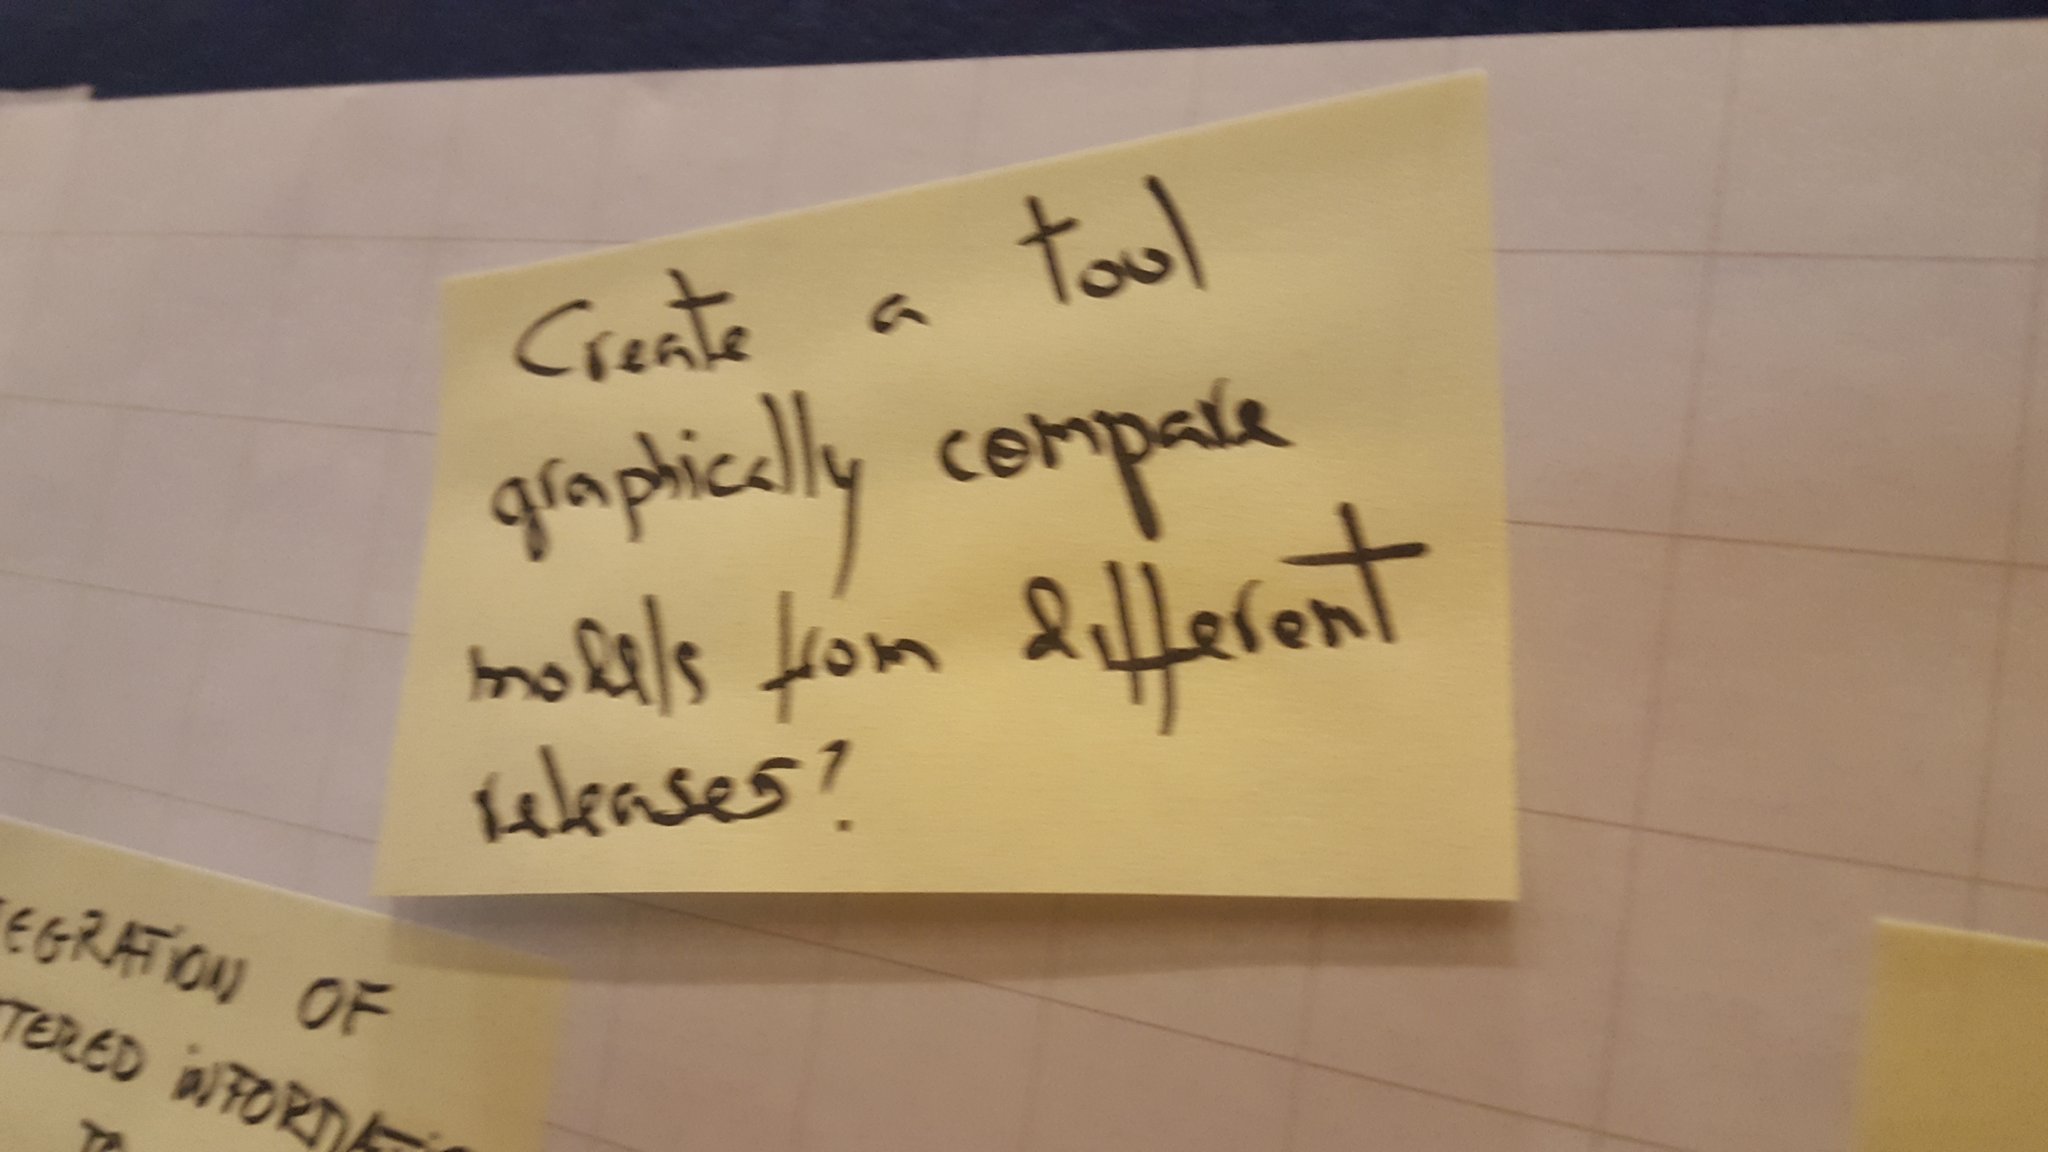 Create a tool
graphically compare
models from different
releases?
TEGRATION OF
TTERED INFORMATIO
TO